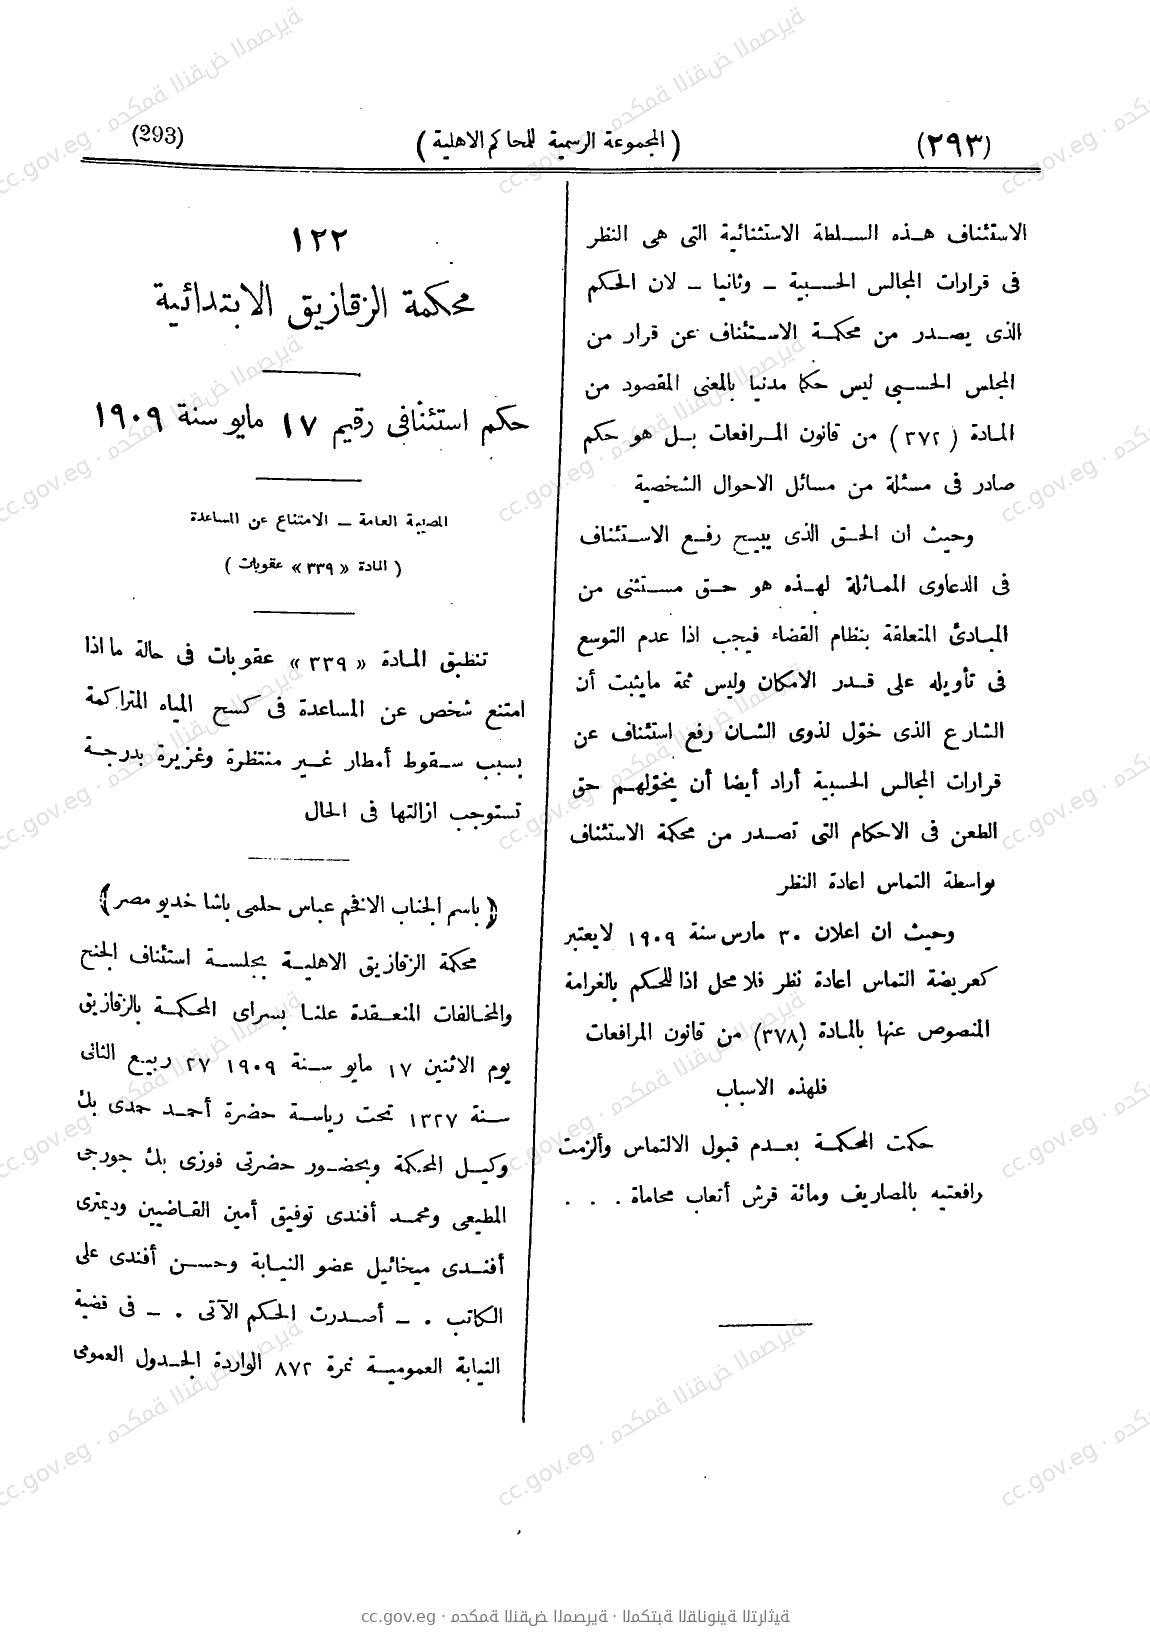 (٢٩٣)
( المجموعة الرسمية للمحاكم الاهلية )
(293)
الاستئناف هذه السلطة الاستثنائية التى هى النظر
فى قرارات المجالس الحسبية – وثانيا – لان الحكم
الذى يصدر من محكمة الاستئناف عن قرار من
المجلس الحسبى ليس حكما مدنيا بالمعنى المقصود من
المادة ( ٣٧٢ ) من قانون المرافعات بل هو حكم
صادر فى مسئلة من مسائل الاحوال الشخصية
وحيث ان الحق الذى يبيح رفع الاستئناف
فى الدعاوى المماثلة لهذه هو حق مستثنى من
المبادئ المتعلقة بنظام القضاء فيجب اذا عدم التوسع
فى تأويله على قدر الامكان وليس ثمة مايثبت أن
الشارع الذى خوّل لذوى الشان رفع استئناف عن
قرارات المجالس الحسبية أراد أيضا أن يخوّلهم حق
الطعن فى الاحكام التى تصدر من محكمة الاستئناف
بواسطة التماس اعادة النظر
وحيث ان اعلان ٣٠ مارس سنة ١٩٠٩ لايعتبر
كعريضة التماس اعادة نظر فلا محل اذا للحكم بالغرامة
المنصوص عنها بالمادة (٣٧٨) من قانون المرافعات
فلهذه الاسباب
حكمت المحكمة بعدم قبول الالتماس وألزمت
رافعتيه بالمصاريف ومائة قرش أتعاب محاماة . . .
١٢٢
محكمة الزقازيق الابتدائية
حكم استئنافى رقيم ١٧ مايو سنة ١٩٠٩
المصيبة العامة – الامتناع عن المساعدة
( المادة « ٣٣٩ » عقوبات )
تنطبق المادة « ٣٣٩ » عقوبات فى حالة ما اذا
امتنع شخص عن المساعدة فى كسح المياه المتراكمة
بسبب سقوط أمطار غير منتظرة وغزيرة بدرجة
تستوجب ازالتها فى الحال
( باسم الجناب الافخم عباس حلمى باشا خديو مصر )
محكمة الزقازيق الاهلية بجلسة استئناف الجنح
والمخالفات المنعقدة علنا بسراى المحكمة بالزقازيق
يوم الاثنين ١٧ مايو سنة ١٩٠٩ ٢٧ ربيع الثانى
سنة ١٣٢٧ تحت رياسة حضرة أحمد حمدى بك
وكيل المحكمة وبحضور حضرتى فوزى بك جورجى
المطيعى ومحمد أفندى توفيق أمين القاضيين وديمترى
أفندى ميخائيل عضو النيابة وحسن أفندى على
الكاتب . – أصدرت الحكم الآتى . – فى قضية
النيابة العمومية نمرة ٨٧٢ الواردة الجدول العمومى
cc.gov.eg · محكمة النقض المصرية · المكتبة القانونية التراثية